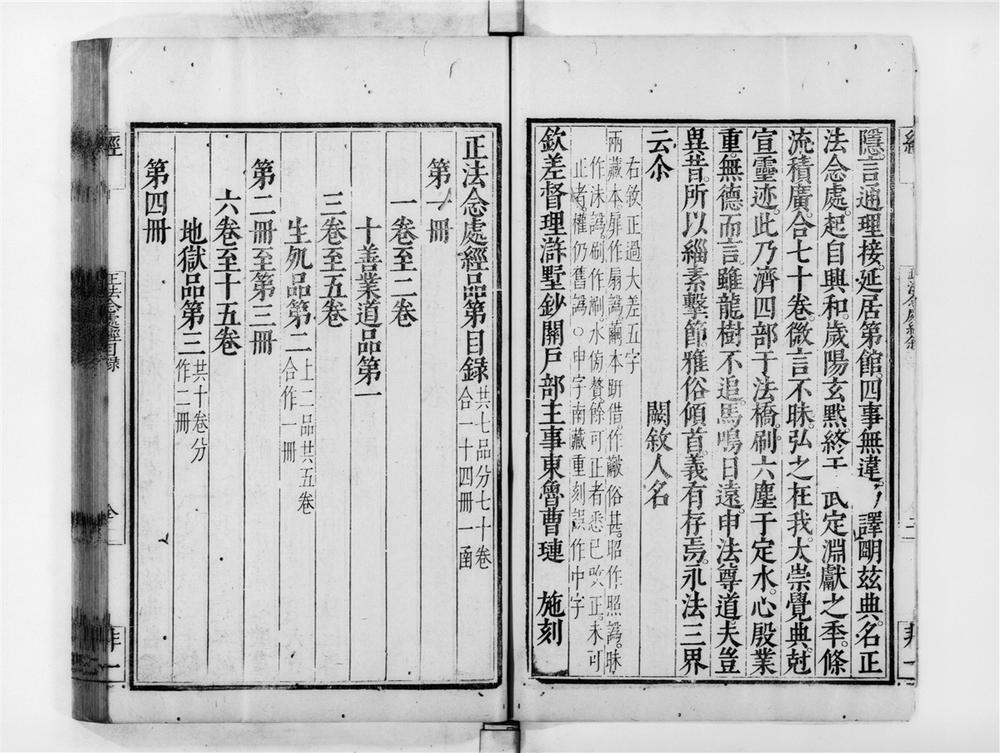 隱言通理接延居第館四事無違譯明茲典名正
法念處起自興和歲陽玄黙終于武定淵獻之季條
流積廣合七十卷微言不昧弘之在我大崇覺典尅
宣靈迹此乃濟四部于法橋刷六塵于定水心殷業
重無德而言雖龍樹不追馬鳴日遠申法尊道夫豈
異昔所以緇素擊節雅俗傾首義有存焉永法三界
云尒 闕敘人名
右敘正過大差五字
兩藏本扉作扇譌藏本研借作巘俗甚昭作照譌昧
作沬譌刷作刷水俯贅餘可正者悉已攺正未可
正者權仍舊譌○申字南藏重刻誤作中字
欽差督理滸墅鈔關戶部主事東魯曹璉 施刻
正法念處經品第目録 共七品分七十卷
合一十四冊一函
第一冊
一卷至二卷
十善業道品第一
三卷至五卷
生死品第二 上二品共五卷
合作一冊
第二冊至第三冊
六卷至十五卷
地獄品第三 共十卷分
作二冊
第四冊
正法念處經目録